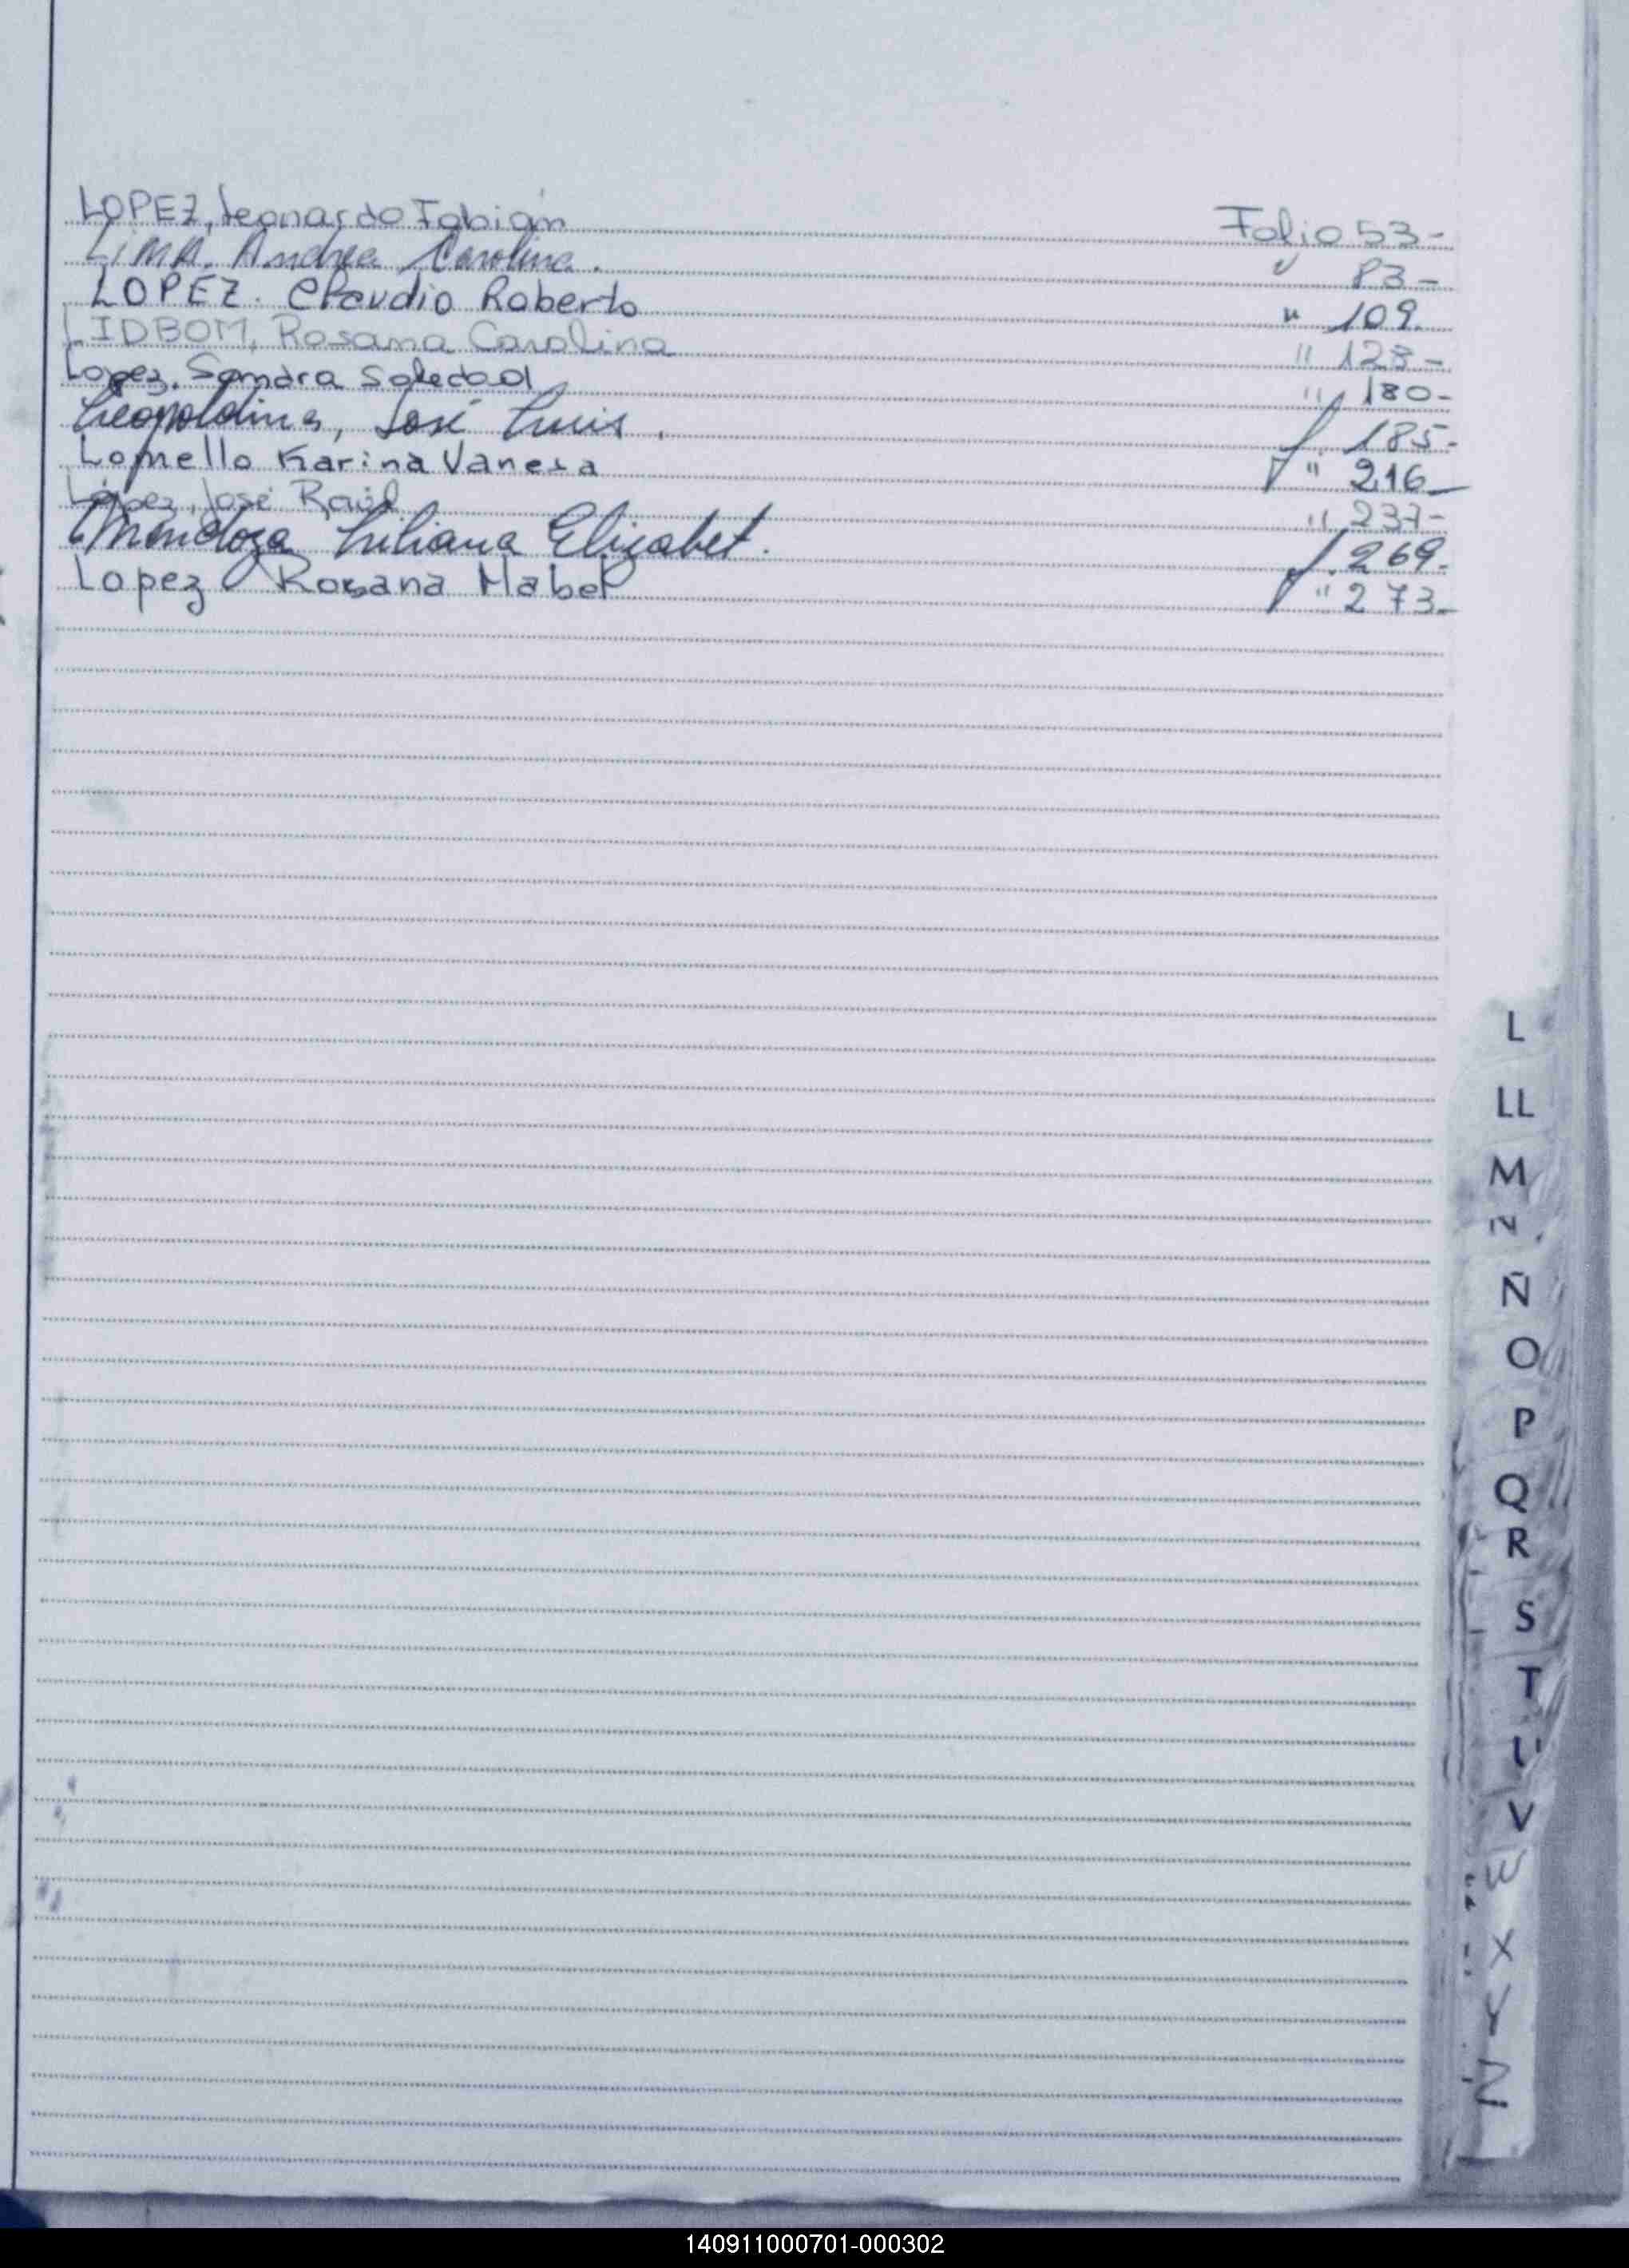 LOPEZ, Leonardo Fabián Folio 53-
Lima. Andrea Carolina. 83-
LOPEZ. Claudio Roberto " 109.
LIDBOM, Rosana Carolina " 128-
Lopez. Sandra Soledad " 180-
José Luis. 185-
Lomello Karina Vanesa " 216-
López, José Raúl " 237-
Mendoza Liliana Elizabet. 269-
Lopez Rosana Mabel " 273-
L
LL
M
N
Ñ
O
P
Q
R
S
T
U
V
W
X
Y
Z
140911000701-000302